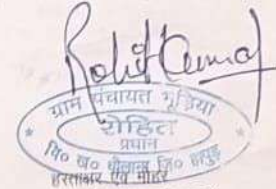 Rohit Kumar
ग्राम पंचायत भूड़िया
रोहित
प्रधान
वि० ख० धौलाना जि० हापुड़
हस्ताक्षर एवं मोहर